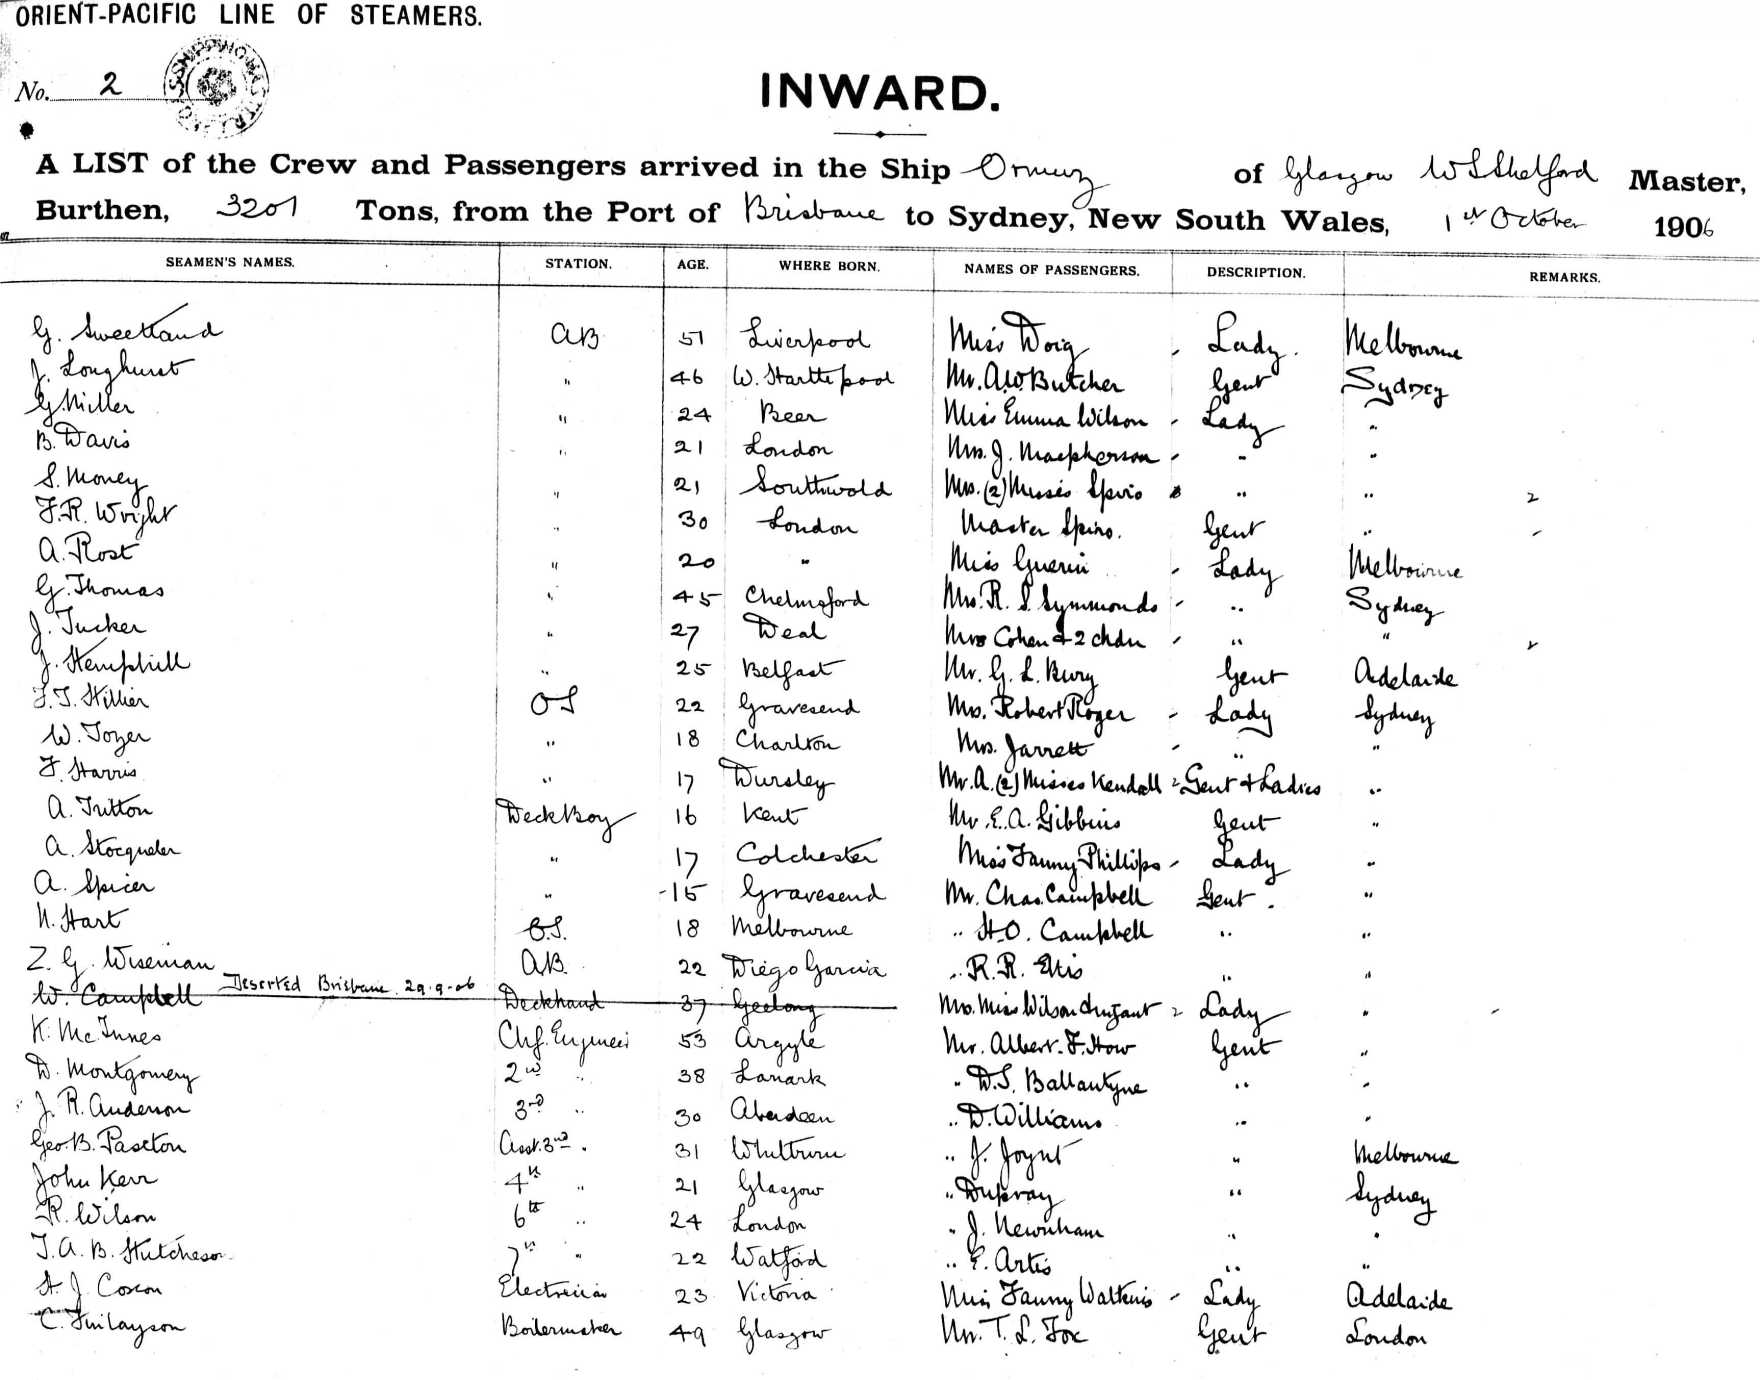 ORIENT-PACIFIC LINE OF STEAMERS.
No. 2
INWARD.
A LIST of the Crew and Passengers arrived in the Ship Ormuz of Glasgow W S Shelford Master,
Burthen, 3201 Tons, from the Port of Brisbane to Sydney, New South Wales, 1st October 1906
SEAMEN'S NAMES. STATION. AGE. WHERE BORN. NAMES OF PASSENGERS. DESCRIPTION. REMARKS.
G. Sweetland AB 51 Liverpool Miss Doig - Lady. Melbourne
J. Longhurst " 46 W. Hartlepool Mr. A.W. Butcher Gent Sydney
G. Miller " 24 Beer Miss Emma Wilson - Lady "
B. Davis " 21 London Mrs. J. Macpherson - " "
S. Money " 21 Southwold Mrs. (2) Misses Spiro " " 2
F.R. Wright " 30 London Master Spiro. Gent " -
A. Rost " 20 " Miss Guerin - Lady Melbourne
G. Thomas " 45 Chelmsford Mrs. R. S. Symmonds - " Sydney
J. Tucker " 27 Deal Mrs Cohen & 2 chdn - " "
J. Hemphill " 25 Belfast Mr. G. L. Bury Gent Adelaide
F.J. Hillier OS 22 Gravesend Mrs. Robert Roger - Lady Sydney
W. Tozer " 18 Charlton Mrs. Jarrett - " "
F. Harris " 17 Dursley Mr. A. (2) Misses Kendall 2 Gent & Ladies "
A. Tritton Deck Boy 16 Kent Mr. E.A. Gibbins Gent "
A. Stocqueler " 17 Colchester Miss Fanny Phillips - Lady "
A. Spicer " 15 Gravesend Mr. Chas. Campbell Gent. "
N. Hart O.S. 18 Melbourne " H.O. Campbell " "
Z. G. Wiseman AB. 22 Diego Garcia " R.R. Ellis " "
W. Campbell Deserted Brisbane 29.9.06 Deckhand 37 Geelong Mrs. Miss Wilson & infant 2 Lady " -
K. McInnes Chf. Engineer 53 Argyle Mr. Albert. F. How Gent "
D. Montgomery 2nd " 38 Lanark " D.S. Ballantyne " "
J. R. Anderson 3rd " 30 Aberdeen " D. Williams " "
Geo. B. Paxton Asst. 3rd " 31 Whitburn " J. Joynt " Melbourne
John Kerr 4th " 21 Glasgow " Sydney
R. Wilson 6th " 24 London " J. Newnham " "
J.A.B. Hutcheson 7th " 22 Watford " E. Artis " "
H. J. Coxon Electrician 23 Victoria Miss Fanny Watkins - Lady Adelaide
C. Finlayson Boilermaker 49 Glasgow Mr. T. L. Fox Gent London